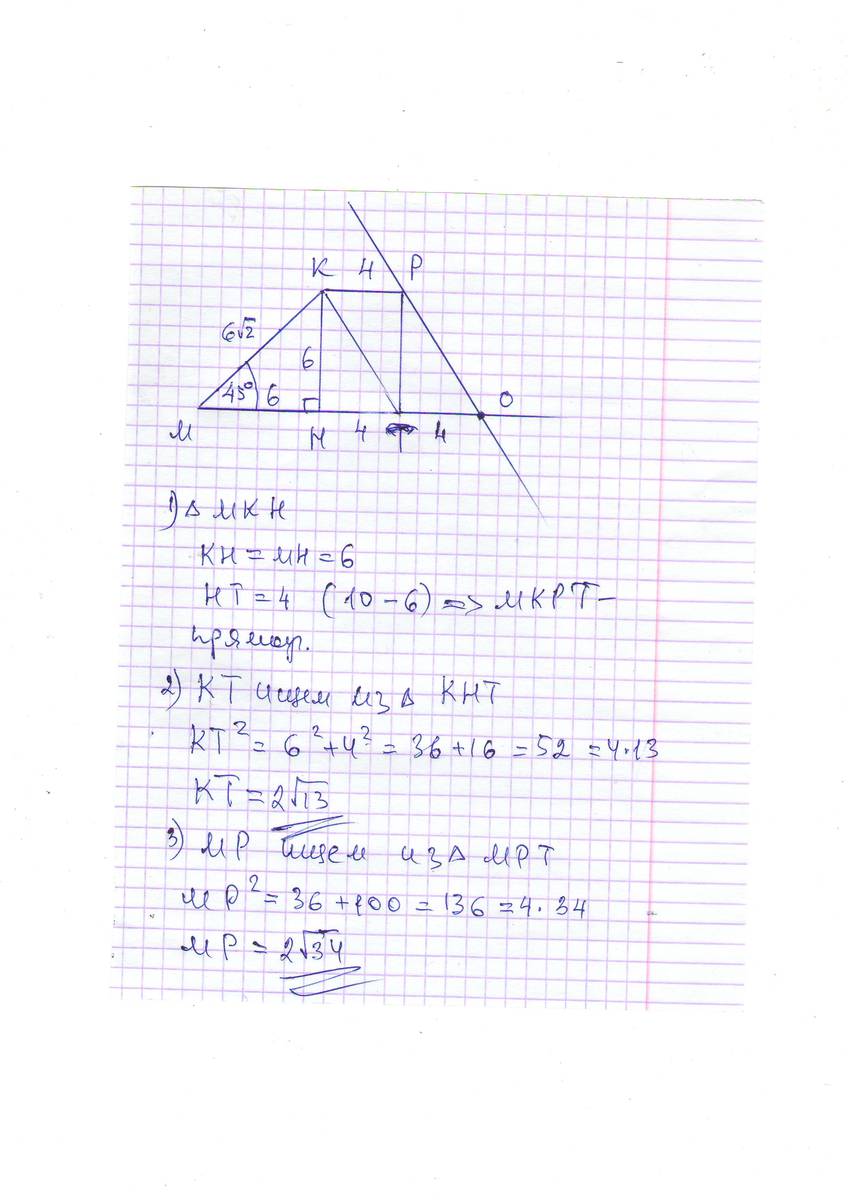 K 4 P
6√2
6
45° 6
O
M H 4 T 4
1) Δ MKH
KH = MH = 6
HT = 4 (10 - 6) => MKPT -
прямоуг.
2) KT ищем из Δ KHT
KT² = 6² + 4² = 36 + 16 = 52 = 4·13
KT = 2√13
3) MP ищем из Δ MPT
MP² = 36 + 100 = 136 = 4·34
MP = 2√34